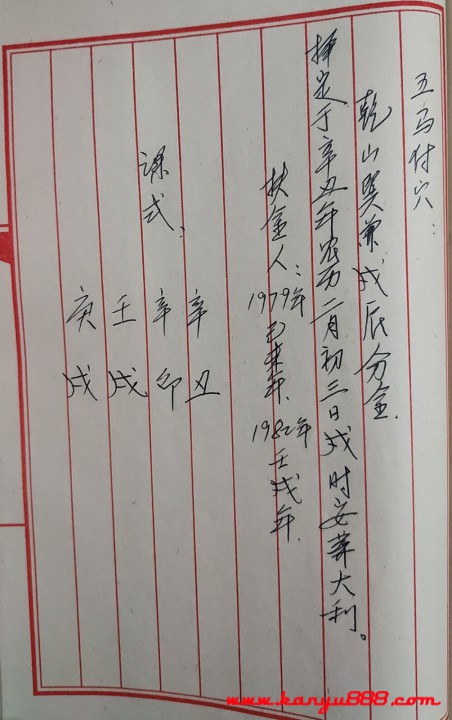 五马付穴：
乾山巽兼戌辰分金.
择定于辛丑年农历二月初三日戌时安葬大利。
扶金人：1979年己未年. 1982年壬戌年.
课式：
辛丑
辛卯
壬戌
庚戌
www.kanyu888.com